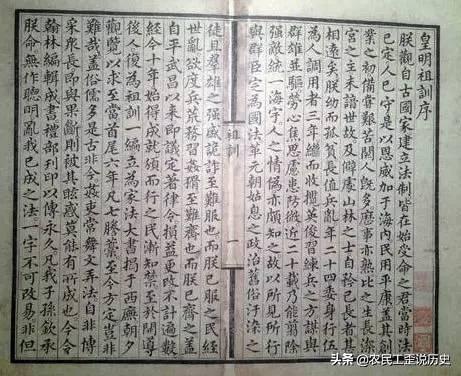 皇明祖訓序
朕觀自古國家建立法制皆在始受命之君當時法
已定人已守是以恩威加于海內民用平康蓋其創
業之初備嘗艱苦閱人旣多歷事亦熟比之生長深
宮之主未諳世故及僻處山林之士自矜己長者甚
相遠矣朕幼而孤貧長值兵亂年二十四委身行伍
為人調用者三年繼而收攬英俊習練兵之方謀與
群雄並驅勞心焦思慮患防微近二十載乃能翦除
強敵統一海宇人之情偽亦頗知之故以所見所行
與群臣定為國法革元朝姑息之政治舊俗汙染之
祖訓
一
徒且羣雄之強盛詭詐至難服也而朕已服之民經
世亂欲度兵荒務習奸猾至難齊也而朕已齊之蓋
自平武昌以來即議定著律令損益更改不計遍數
經今十年始得成就頒而行之民漸知禁至於開導
後人復為祖訓一編立為家法大書揭于西廡朝夕
觀覽以求至當首尾六年凡七謄藁至今方定豈非
難哉蓋俗儒多是古非今姦吏常舞文弄法自非博
采衆長即與果斷則被其眩惑莫能有所成也今令
翰林編輯成書禮部刊印以傳永久凡我子孫欽承
朕命無作聰明亂我已成之法一字不可改易非但
头条 @农民工歪说历史